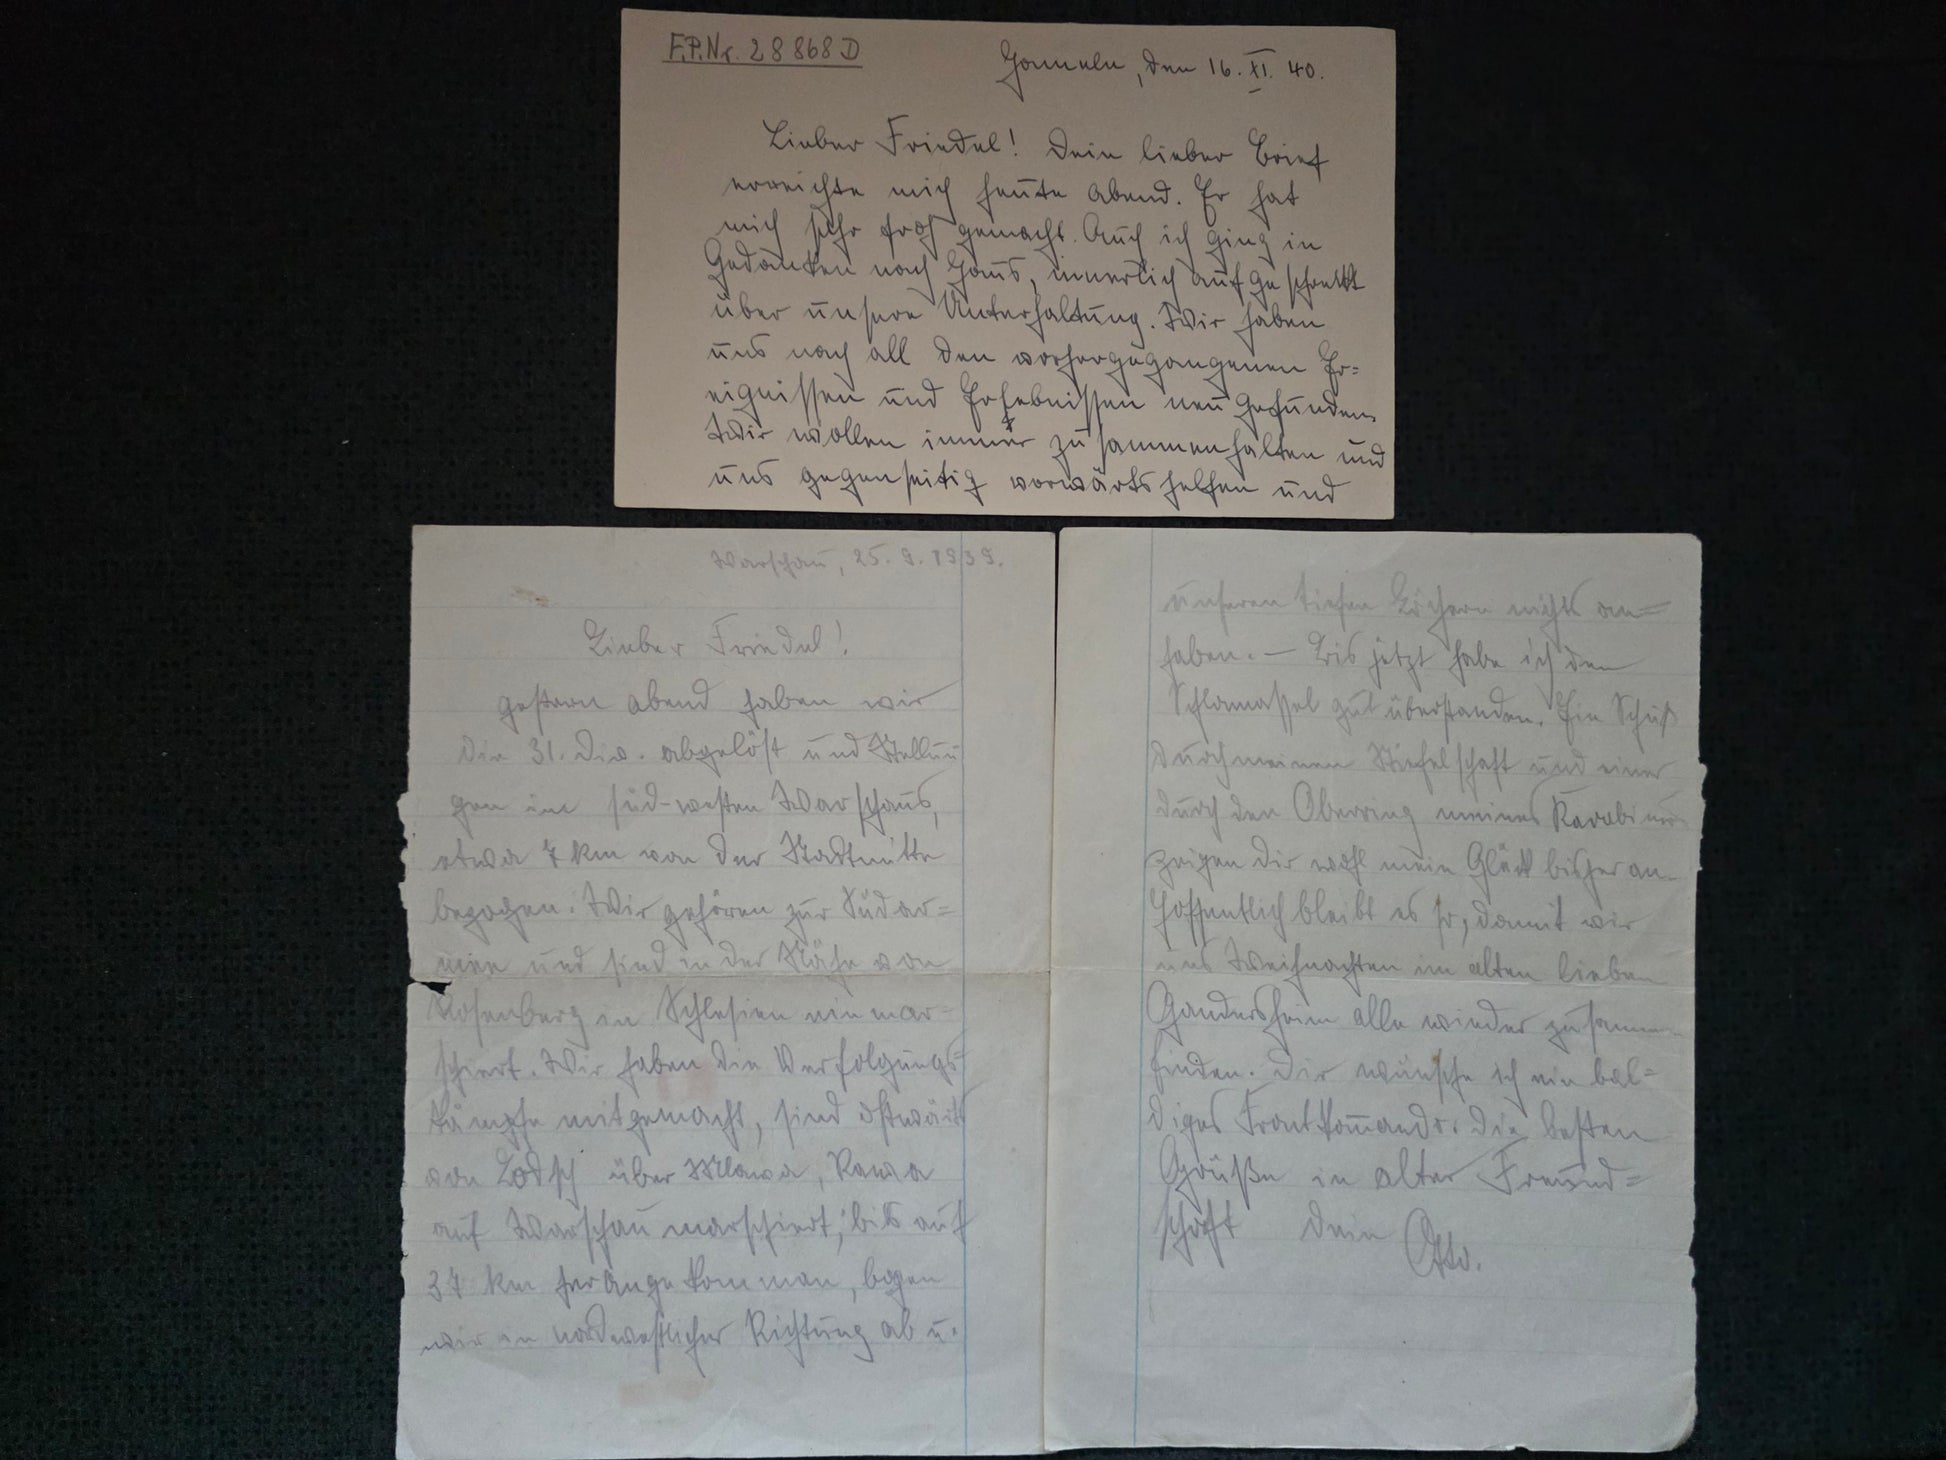 F.P.Nr. 28868 D
Hameln, den 16. XI. 40.
Lieber Friedel! Dein lieber Brief
erreichte mich heute abend. Er hat
mich sehr froh gemacht. Auch ich ging in
Gedanken nach Haus, innerlich aufge
über unsere Unterhaltung. Wir haben
uns nach all den vorhergegangenen Er=
eignissen und Erlebnissen neu gefunden.
Wir wollen immer zusammenhalten und
uns gegenseitig vorwärts helfen und
Warschau, 25. 9. 1939.
Lieber Friedel!
gestern abend haben wir
die 31. Div. abgelöst und Stellun
gen im süd-westen Warschaus,
etwa 7 km von der Stadtmitte
bezogen. Wir gehören zur Südar=
mee und sind in der Nähe von
Rosenberg in Schlesien einmar=
schiert. Wir haben die Verfolgungs=
kämpfe mitgemacht, sind ostwärts
von Lodsch über Mlawa, Rawa
auf Warschau marschiert, bis auf
37 km herangekommen, bogen
wir in nordwestlicher Richtung ab u.
unseren tiefen Löchern nichts an=
haben. — Bis jetzt habe ich den
Schlamassel gut überstanden. Ein Schuß
durch meinen Stiefelschaft und einer
durch den Oberring meines Karabiners
zeigen dir wohl mein Glück bisher an.
Hoffentlich bleibt es so, damit wir
uns Weihnachten im alten lieben
Gandersheim alle wieder zusammen
finden. Dir wünsche ich ein bal=
diges Frontkommando. Die besten
Grüße in alter Freund=
schaft Dein Otto.